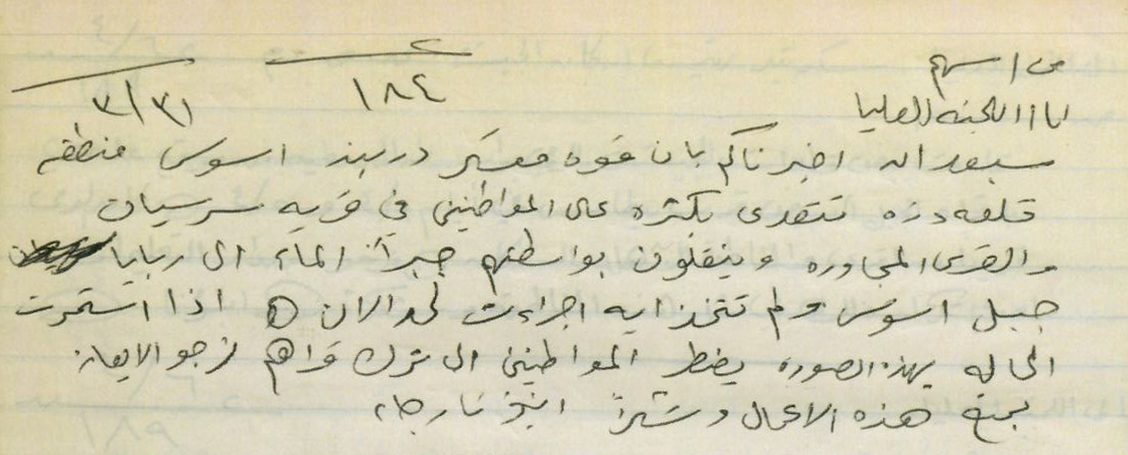 من / سهم
٢
١٨٤
٣/٣١
الى / اللجنه العليا
سبق ان اخبرناكم بان قوه معسكر دربند اسوس منطقه
قلعه دزه تتعدى بكثره على المواطنين في قريه سرسيان
والقرى المجاوره وينقلون بواسطتهم جبراً الماء الى ربايا
جبل اسوس ولم تتخذ ايه اجراءت لحد الان (٥) اذا استمرت
الحاله بهذه الصوره يضطر المواطنين الى ترك قراهم نرجو الايعاز
بمنع هذه الاعمال و انبؤنا رجاء